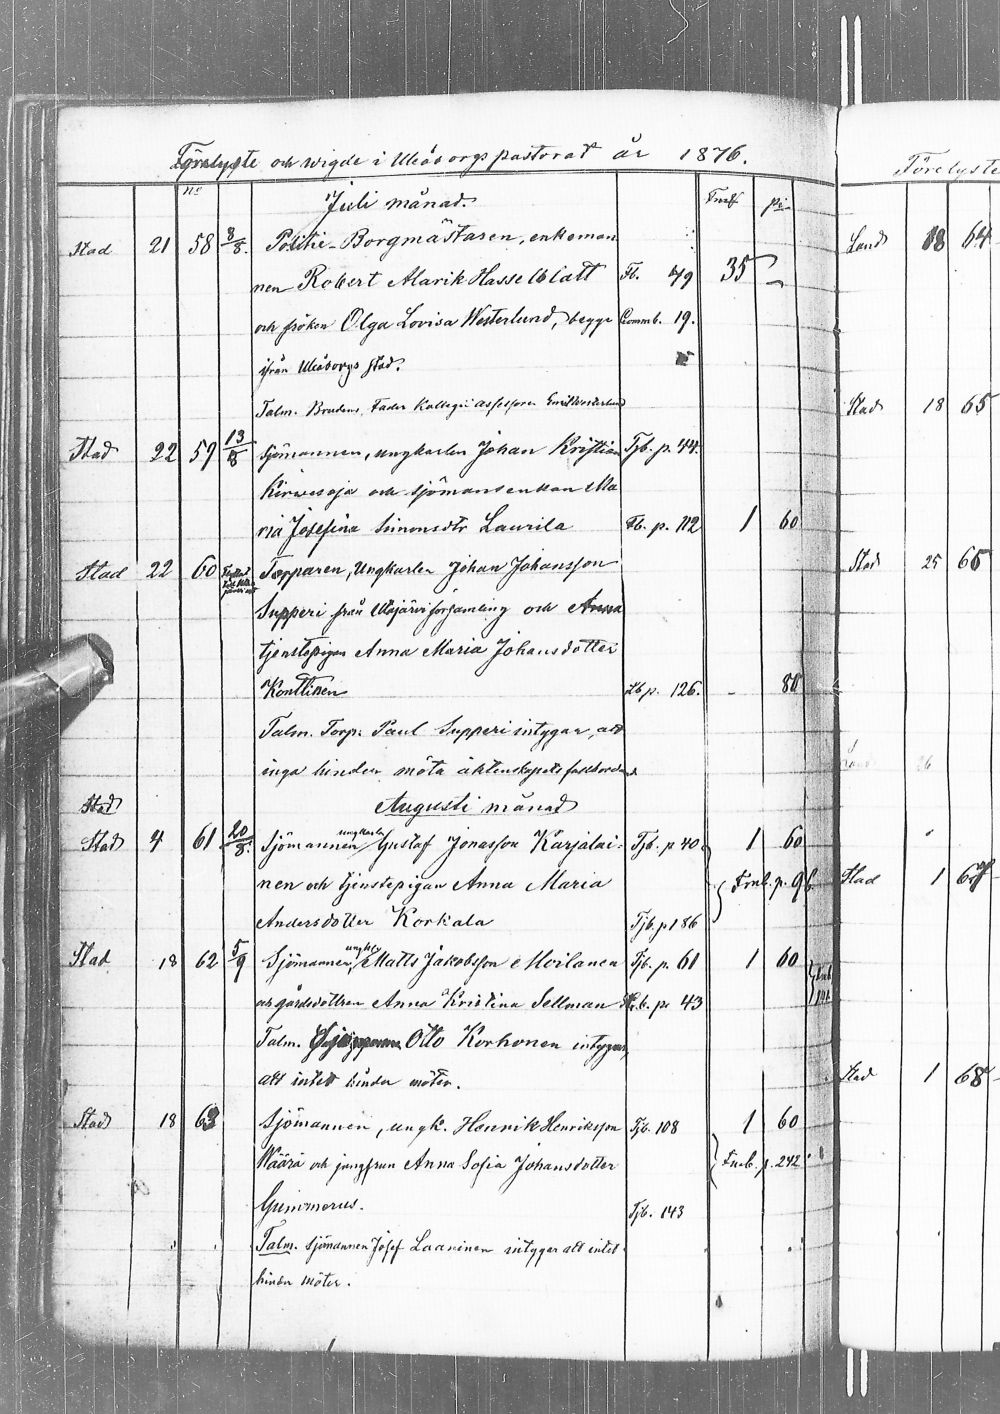 Förelyste och wigde i Uleåborgs pastorat år 1876.
no Fmk pi
Juli månad.
Stad 21 58 8/8. Politie-Borgmästaren, enkeman
nen Robert Alarik Hasselblatt Fb. 79 35
och fröken Olga Lovisa Westerlund, begge Commb. 19.
ifrån Uleåborgs stad.
Talm. Brudens Fader Kollegii assessoren Emil Westerlund
Stad 22 59 13/8 Sjömannen, ungkarlen Johan Kristian Tjb. p. 44.
Kirwesoja och sjömansenkan Ma
ria Josefina Simonsdtr Laurila Fb. p. 112 1 60
Stad 22 60 Torparen, Ungkarlen Johan Johansson
Supperi från församling och Anna
tjenstepigan Anna Maria Johansdotter
Konttinen Lb p. 126. - 80
Talm. Torp. Paul Supperi intygar, att
inga hinder möta äktenskapets fullbordand
Stad Augusti månad
Stad 4 61 20/8. Sjömannen ungkarln Gustaf Jonasson Karjalai= Tjb. p 40 1 60
nen och tjenstepigan Anna Maria Fmb. p. 96
Andersdotter Korkala Tjb. p 186
Stad 18 62 5/9 Sjömannen, Matts Jakobsson Moilanen Tjb. p. 61 1 60
o gårdsdottren Anna Kristina Sellman p. 43
Talm. Otto Korhonen intygar,
att intet hinder möter.
Stad 18 63 Sjömannen, ungk. Henrik Henriksson Tjb. 108 1 60
Wäärä och jungfrun Anna Sofia Johansdotter Fmb. p. 242
Gummerus. Tjb. 143
Talm. sjömannen Josef Laaninen intygar att intet
hinder möter.
Förelyste
Land 18 64
Stad 18 65
Stad 25 66
Land 26
Stad 1 67
Stad 1 68